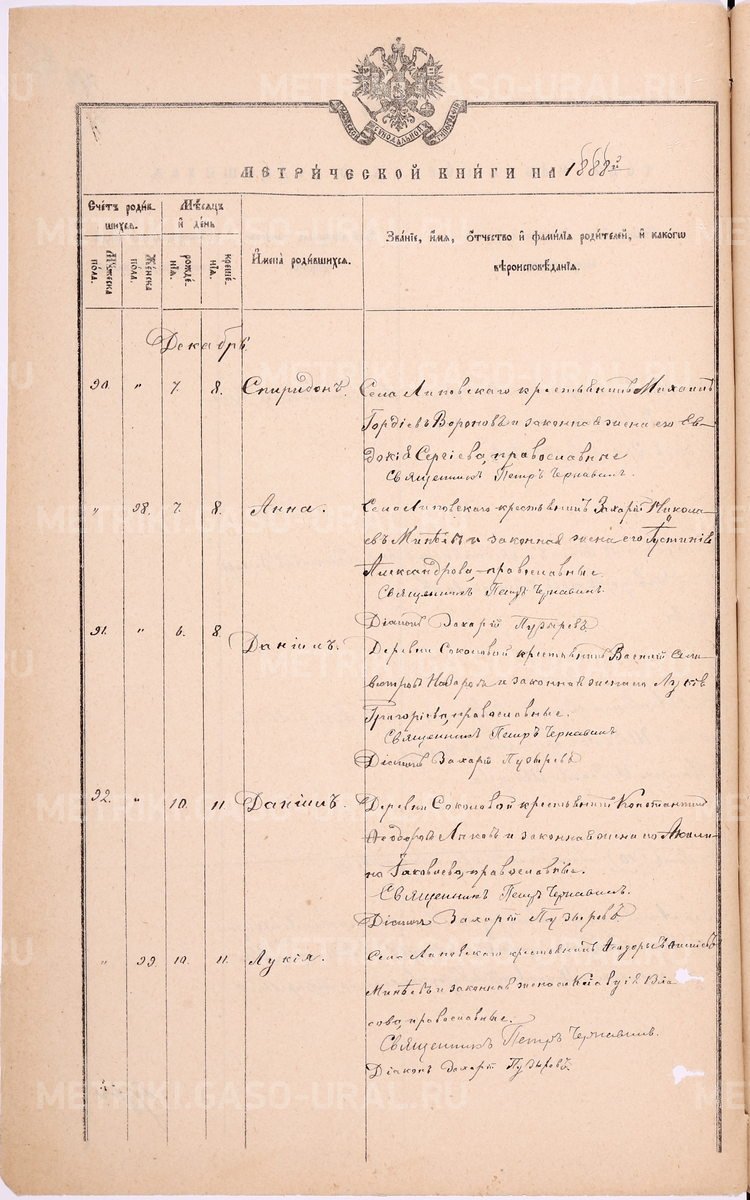 МЕТРИ́ЧЕСКОЙ КНИ́ГИ НА 1888й
Счётъ роди́в-
шихся.
Мѣсяцъ
и҆ де́нь
И҆мена̀ роди́вшихся.
Зва́нїе, и҆́мя, ѻ҆́тчество и҆ фами́лїя роди́телей, и҆ како́гѡ
вѣроисповѣ́данїя.
Мꙋ́жеска по́ла.
Же́нска по́ла.
рожде́нїя.
креще́нїя.
Декабрь
90. " 7. 8. Спиридонъ. Села Липовскаго крестьянинъ Михаилъ
Гордіевъ Вороновъ и законная жена его Ев-
докія Сергіева, православные
Священникъ Петръ Чернавинъ.
" 98. 7. 8. Анна. Села Липовскаго крестьянинъ Захарій Никола-
евъ Минѣевъ и законная жена его Іустинія
Александрова, православные.
Священникъ Петръ Чернавинъ.
Діаконъ Захарій Пузыревъ
91. " 6. 8. Даніилъ. Деревни Соколовой крестьянинъ Василій
Назаровъ и законная жена его Лукія
Григоріева, православные.
Священникъ Петръ Чернавинъ
Діаконъ Захарій Пузыревъ
92. " 10. 11. Даніилъ. Деревни Соколовой крестьянинъ Константинъ
Ѳеодоровъ и законная жена его Акили-
на Іаковлева, православные.
Священникъ Петръ Чернавинъ.
Діаконъ Захарій Пузыревъ
" 99 10. 11. Лукія. Села Липовскаго крестьянинъ Ѳеодоръ
Минѣевъ и законная жена его Клавдія Вла-
сова, православные.
Священникъ Петръ Чернавинъ.
Діаконъ Захарій Пузыревъ.
METRIKI.GASO-URAL.RU